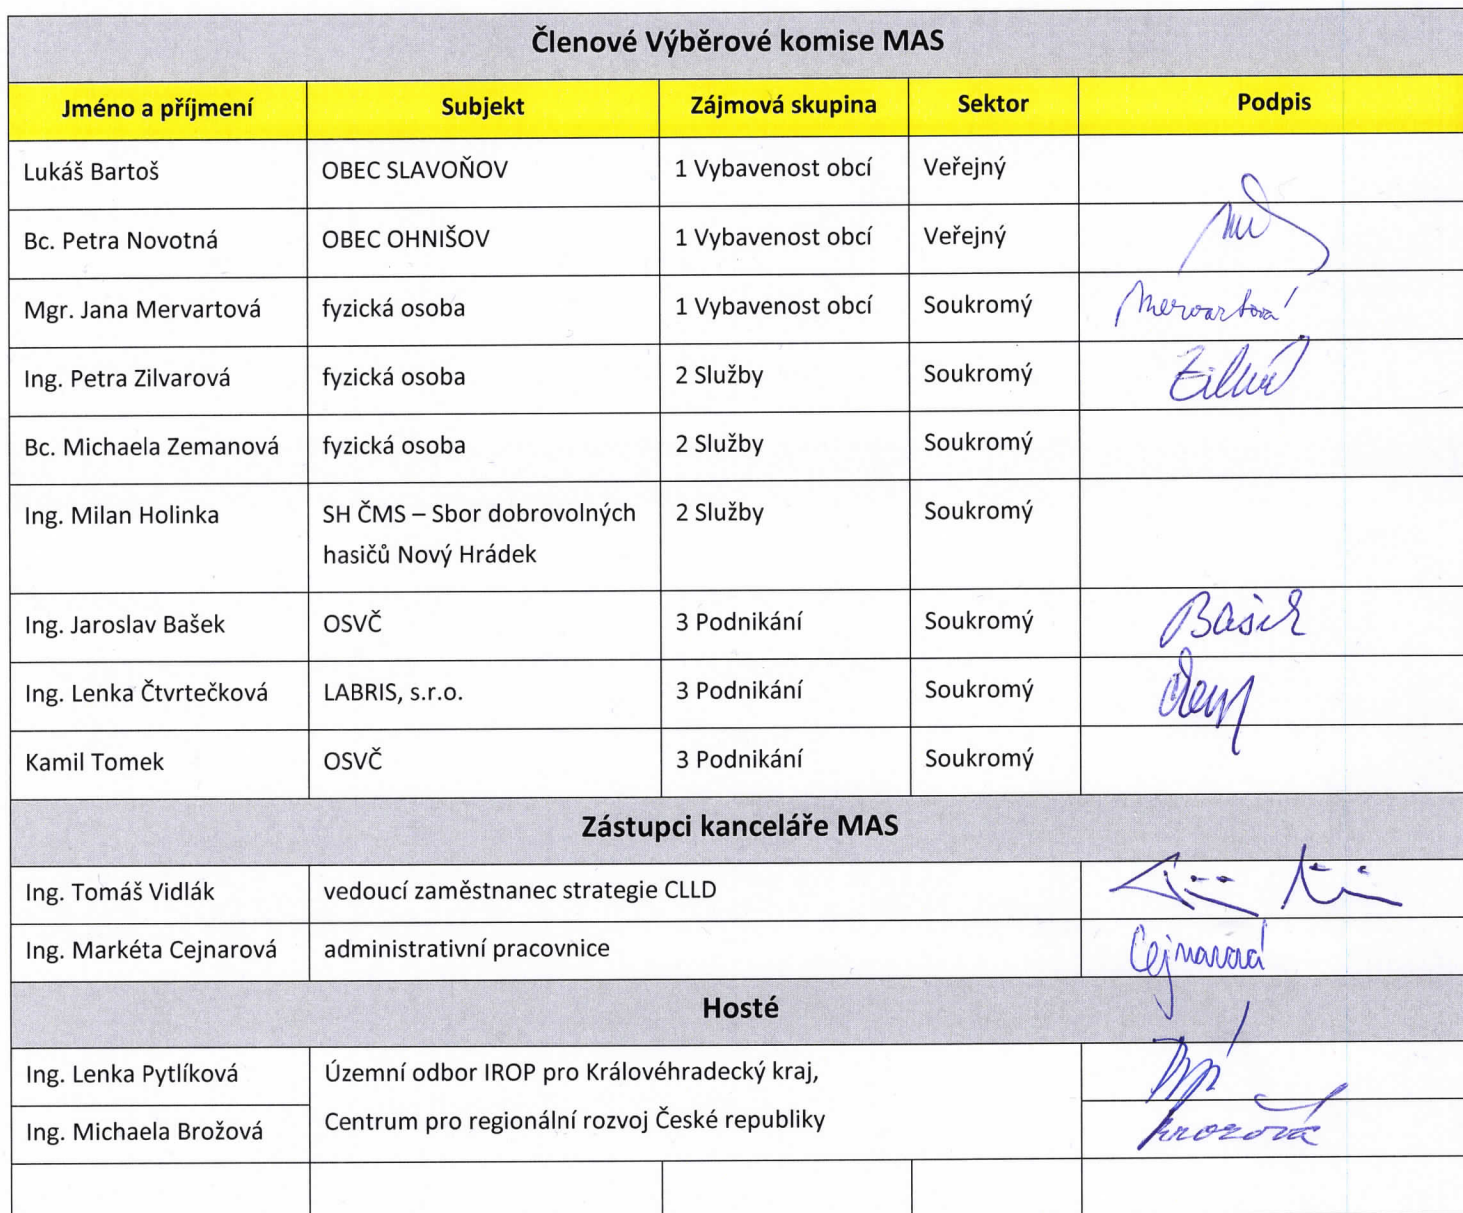 Členové Výběrové komise MAS
Jméno a příjmení Subjekt Zájmová skupina Sektor Podpis
Lukáš Bartoš OBEC SLAVOŇOV 1 Vybavenost obcí Veřejný
Bc. Petra Novotná OBEC OHNIŠOV 1 Vybavenost obcí Veřejný
Mgr. Jana Mervartová fyzická osoba 1 Vybavenost obcí Soukromý Mervartová
Ing. Petra Zilvarová fyzická osoba 2 Služby Soukromý
Bc. Michaela Zemanová fyzická osoba 2 Služby Soukromý
Ing. Milan Holinka SH ČMS – Sbor dobrovolných 2 Služby Soukromý
hasičů Nový Hrádek
Ing. Jaroslav Bašek OSVČ 3 Podnikání Soukromý Bašek
Ing. Lenka Čtvrtečková LABRIS, s.r.o. 3 Podnikání Soukromý
Kamil Tomek OSVČ 3 Podnikání Soukromý
Zástupci kanceláře MAS
Ing. Tomáš Vidlák vedoucí zaměstnanec strategie CLLD
Ing. Markéta Cejnarová administrativní pracovnice Cejnarová
Hosté
Ing. Lenka Pytlíková Územní odbor IROP pro Královéhradecký kraj,
Ing. Michaela Brožová Centrum pro regionální rozvoj České republiky Brožová